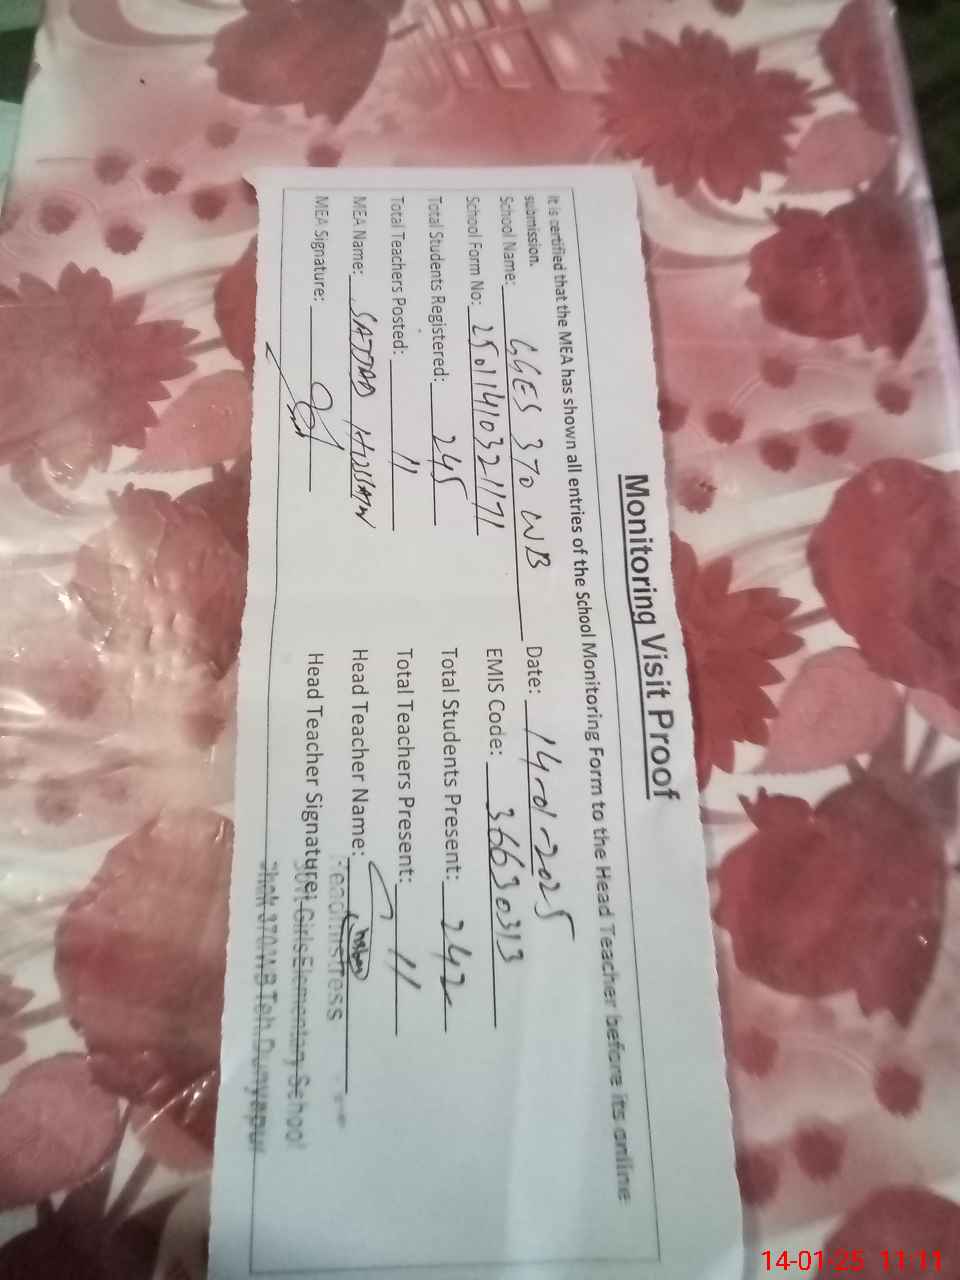 Monitoring Visit Proof
It is certified that the MEA has shown all entries of the School Monitoring Form to the Head Teacher before its online
submission.
School Name: GGES 370 WB Date: 14-01-2025
School Form No: 25011410321171 EMIS Code: 36630313
Total Students Registered: 245 Total Students Present: 242
Total Teachers Posted: 11 Total Teachers Present: 11
MEA Name: SAJJAD HUSSAIN Head Teacher Name:
MEA Signature: Head Teacher Signature:
Headmistress
Govt Girls Elementary School
Chak 370/W.B Teh. Dunyapur
14-01-25 11:11